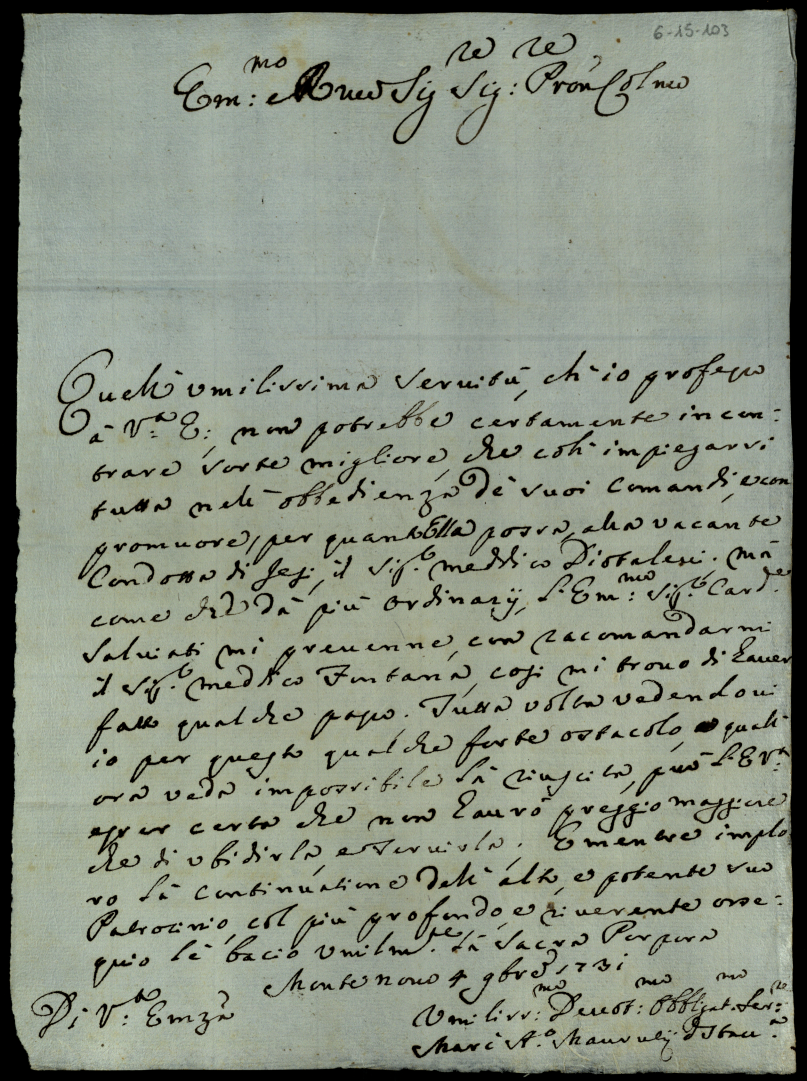 6-15-103
Em:mo e Rmo Sigre Sig:re Pron Colmo
Quell' vmilissima seruitù, ch' io professo
à V:ra E:, non potrebbe certamente incon-
trare sorte migliore, che coll' impiegarsi
tutta nell' obbedienza de' suoi comandi, e con
promuore, per quant Ella possa, alla vacante
Condotta di Jesi, il Sig.r meddico Diotaleui. mà
come che dà più ordinarij, l' Em:mo Sig.r Card.e
Saluiati mi preuenne, con racomandarmi
il Sig.r meddico Fontana, così mi trouo di hauer
fatto qualche passo. Tutta volta vedendoui
io per questo qualche forte ostacolo, e quall'
ora veda impossibile la riuscita, può l' E V:ra
esser certa che non haurò preggio maggiore
che di vbidirla, e seruirla. E mentre implo
ro la continuatione dell' alto, e potente suo
Patrocinio, col più profondo, e riuerente osse-
quio le bacio vmilm:te la Sacra Porpora
Monte nouo 4 9bre 1731
Di V:ra Emza
Vmiliss:mo Deuot:mo Obbligat:mo Ser:re
Marc A.o